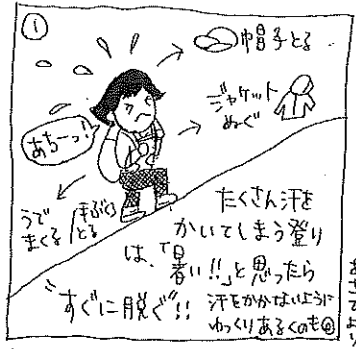 ①
帽子とる
ジャケット
ぬぐ
あちーっ!!
うで
まくる
手ぶくろ
とる
たくさん汗を
かいてしまう登り
は、「暑い!!」と思ったら
すぐに脱ぐ!!
汗をかかないように
ゆっくりあるくのも